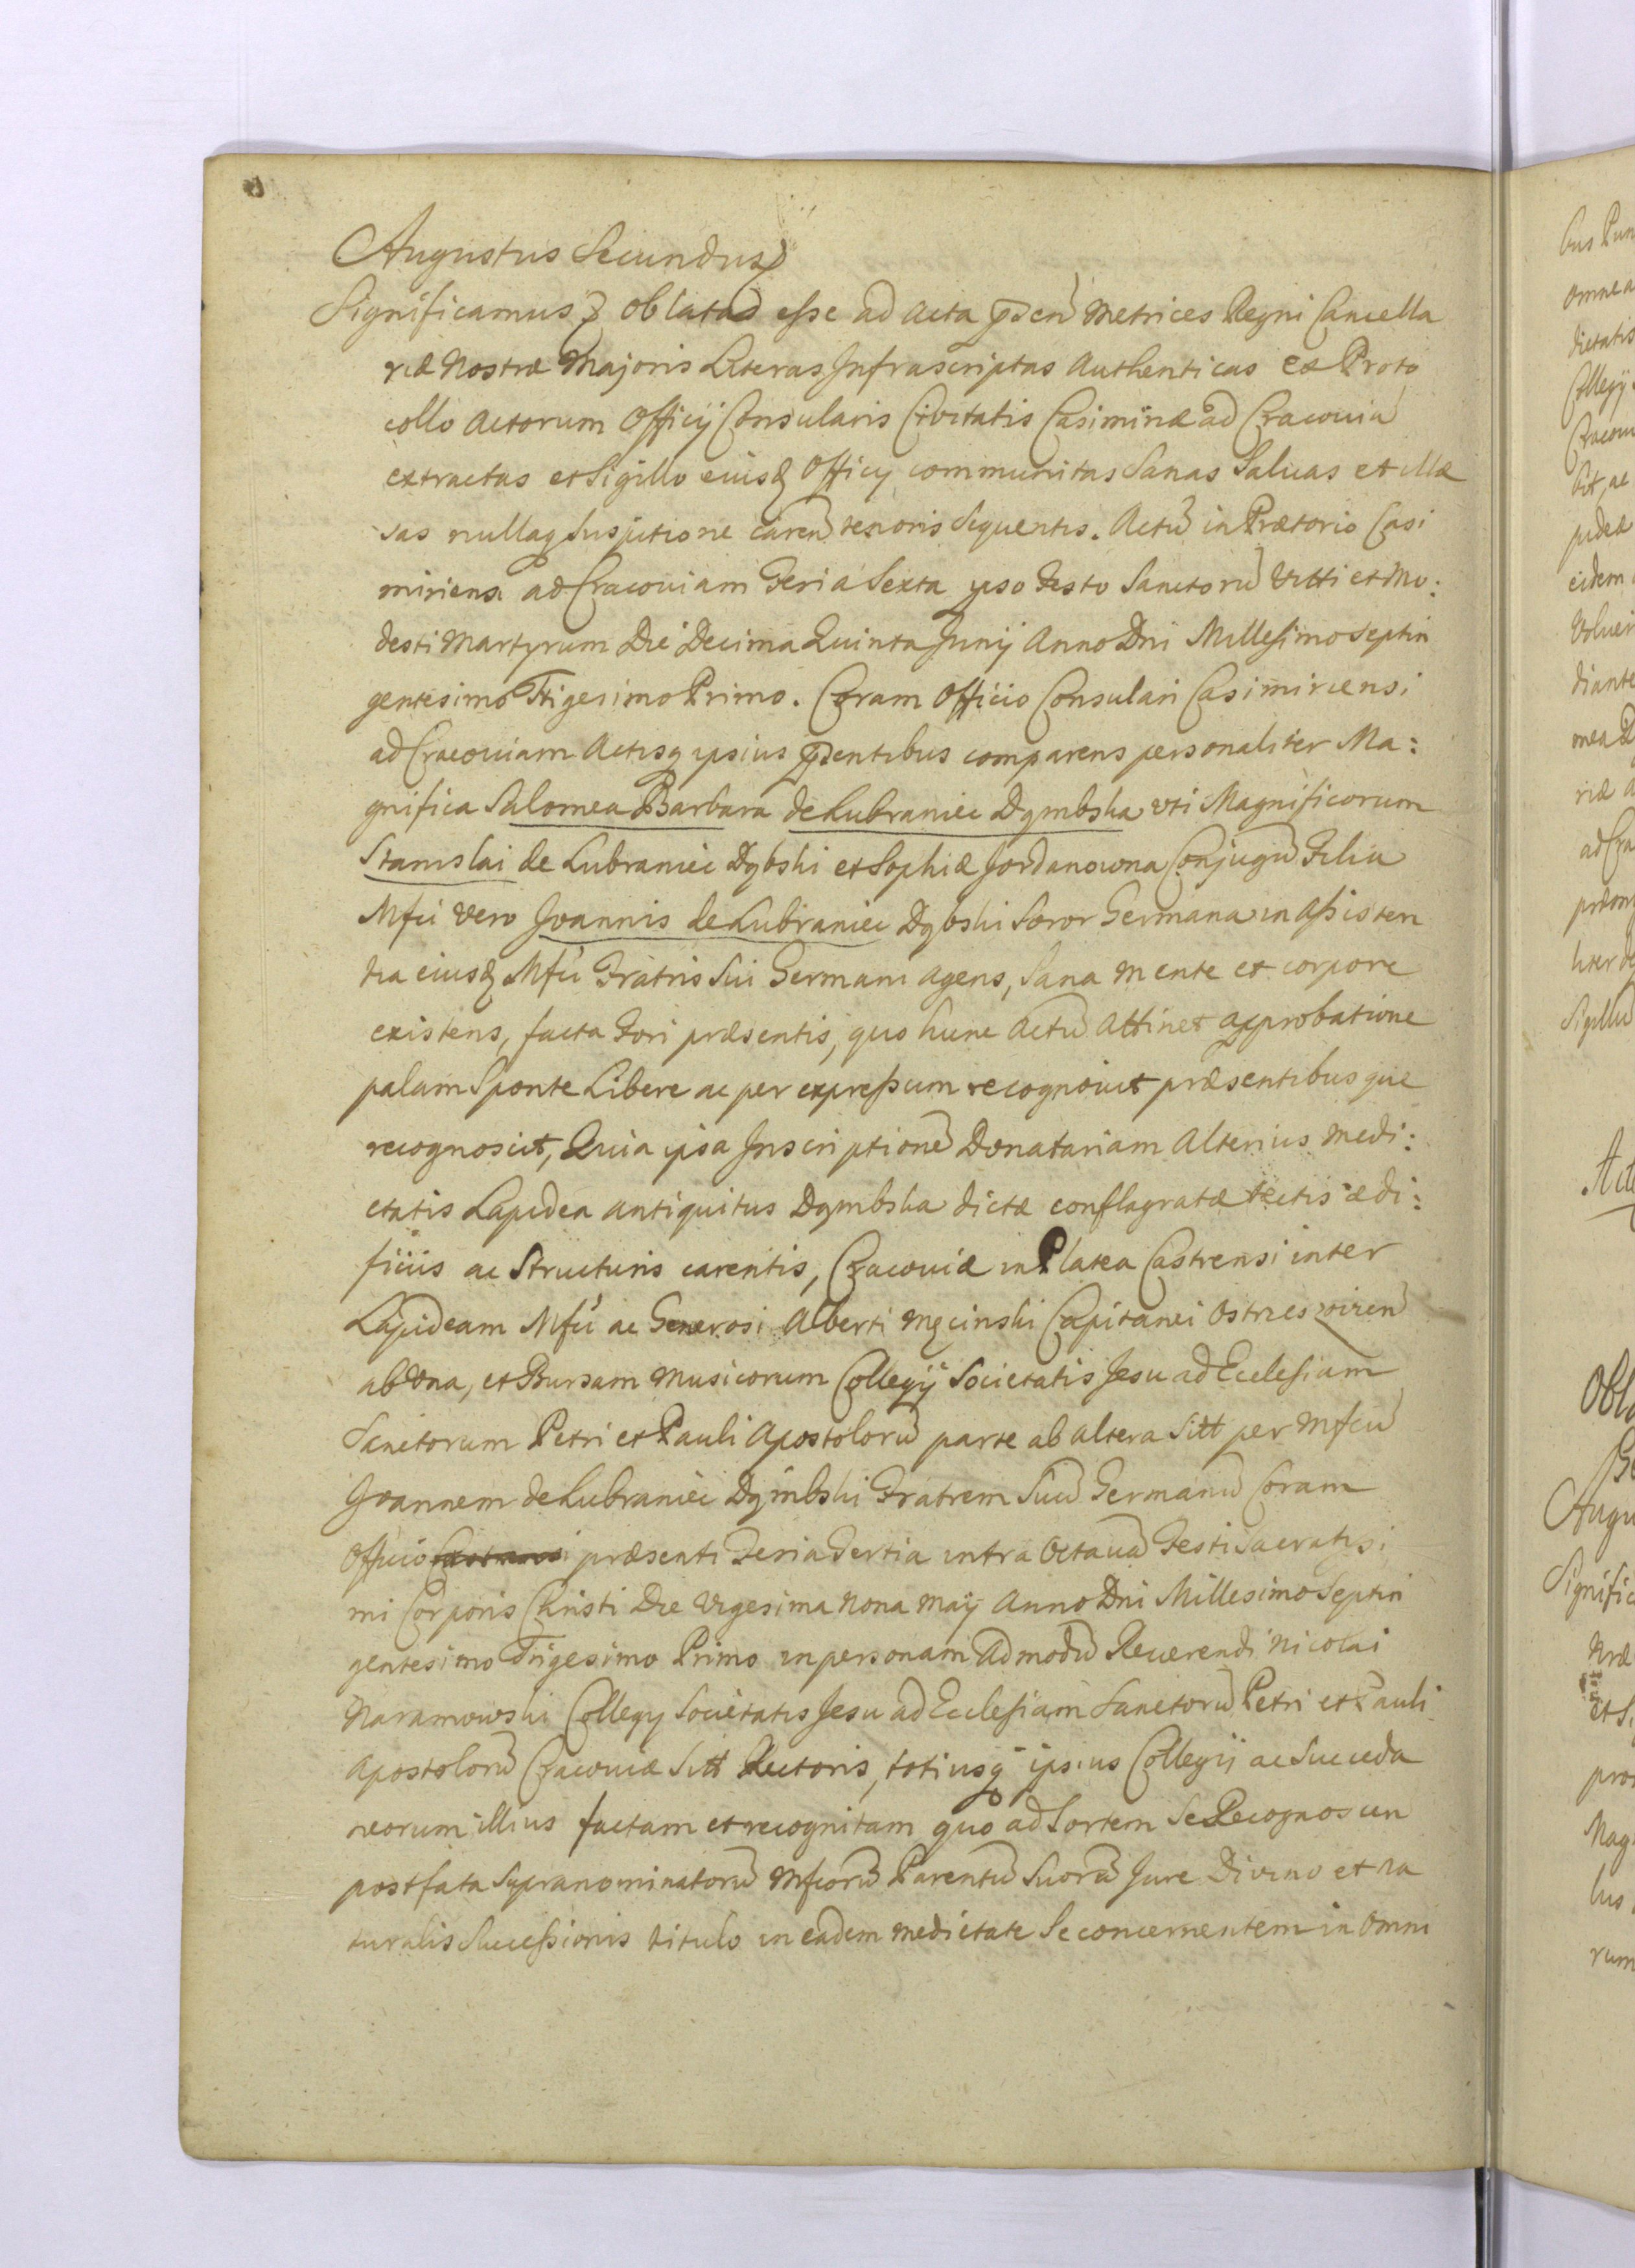 Augustus Secundus
Significamus oblatas esse ad Acta pñden Metrices Regni Cancella
riæ Nostræ Majoris Literas Infrascriptas Authenticas ex Proto
collo Actorum Officij Consularis Civitatis Casimiriæ ad Cracoviã
extractas et Sigillo eiusq Officij communitas Sanas Salvas et illæ
sas nullaq Suspitione carẽn tenoris Sequentis. Actũ in Prætorio Casi
miriensi ad Cracoviam Feria Sexta ipso Festo Sanctorũ Vitti et Mo:
desti Martyrum Die Decima Quinta Junij Anno Dni Millesimo Septin
gentesimo Trigesimo Primo. Coram Officio Consulari Casimiriensi
ad Cracoviam Actisq ipsius pñdentibus comparens personaliter Ma:
gnifica Salomea Barbara de Lubraniec Dąmbska uti Magnificorum
Stanislai de Lubraniec Dąbski et Sophiæ Jordanowna Conjugũ Filia
Mfci vero Joannis de Lubraniec Dąbski Soror Germana in Assisten
tia eiusq Mfci Fratris Sui Germani agens, Sana mente et corpore
existens, facta Fori præsentis, quo hunc Actũ Attinet approbatione
palam Sponte Libere ac per expressum recognovit præsentibusque
recognoscit, Quia ipsa Inscriptionẽ Donatariam Alterius Medi:
etatis Lapidea antiquitus Dąmbska dictæ conflagratæ tectis ædi:
ficiis ac Structuris carentis, Cracoviæ in Platea Castrensi inter
Lapideam Mfci ac Generosi Alberti Męcinski Capitanei Ostrzeszovien
ab una, et Bursam Musicorum Collegij Societatis Jesu ad Ecclesiam
Sanctorum Petri et Pauli Apostolorũ parte ab altera Sitt per Mfcũ
Joannem de Lubraniec Dąmbski Fratrem Suũ Germanũ Coram
Officio præsenti Feria Tertia intra Octavã Festi Sacratissi
mi Corporis Christi Die Vigesima Nona Maij Anno Dni Millesimo Septin
gentesimo Trigesimo Primo in personam Admodũ Reverendi Nicolai
Naramowski Collegij Societatis Jesu ad Ecclesiam Sanctorũ Petri et Pauli
Apostolorũ Cracoviæ Sitt Rectoris, totiusq ipsius Collegij ac Succeda
neorum illius factam et recognitam quo ad Sortem Se Recognoscen
post fata Supranominatorũ Mfcorũ Parentũ Suorũ Jure Divino et na
turalis Successionis titulo in eadem medietate Se concernentem in Omni